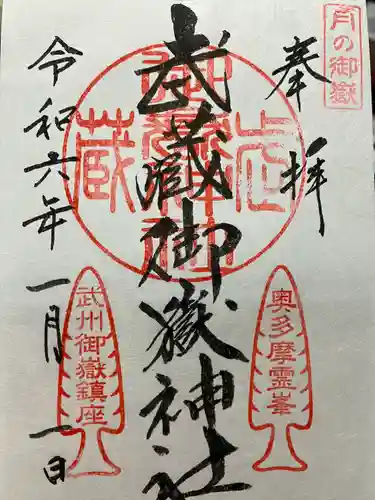 月の御嶽
奉拝
奥多摩霊峯
武蔵御嶽神社
武州御嶽鎮座
令和六年一月一日